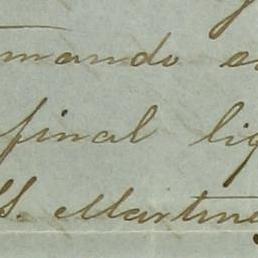 mando
final liq
S. Martine